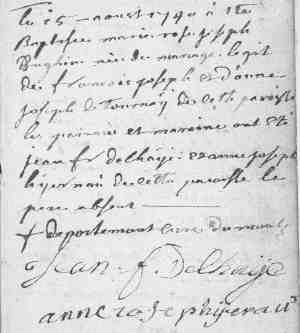 le 25 aoust 1740 a été
Baptisée marie rose joseph
née du mariage legit
de francois joseph et d'anne
joseph de Tournay de cette paroisse
le parain et mareine ont été
jean fr delhaije et anne joseph
de cette paroisse le
pere absent
f deportemont cure
Jean f. Delhaije
anne iosephe